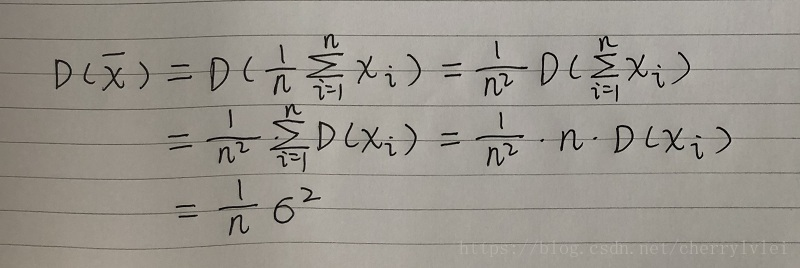 D(x̄) = D(1/n ∑_{i=1}^{n} x_i) = 1/n² D(∑_{i=1}^{n} x_i)
= 1/n² · ∑_{i=1}^{n} D(x_i) = 1/n² · n · D(x_i)
= 1/n σ²
https://blog.csdn.net/cherrylvlei